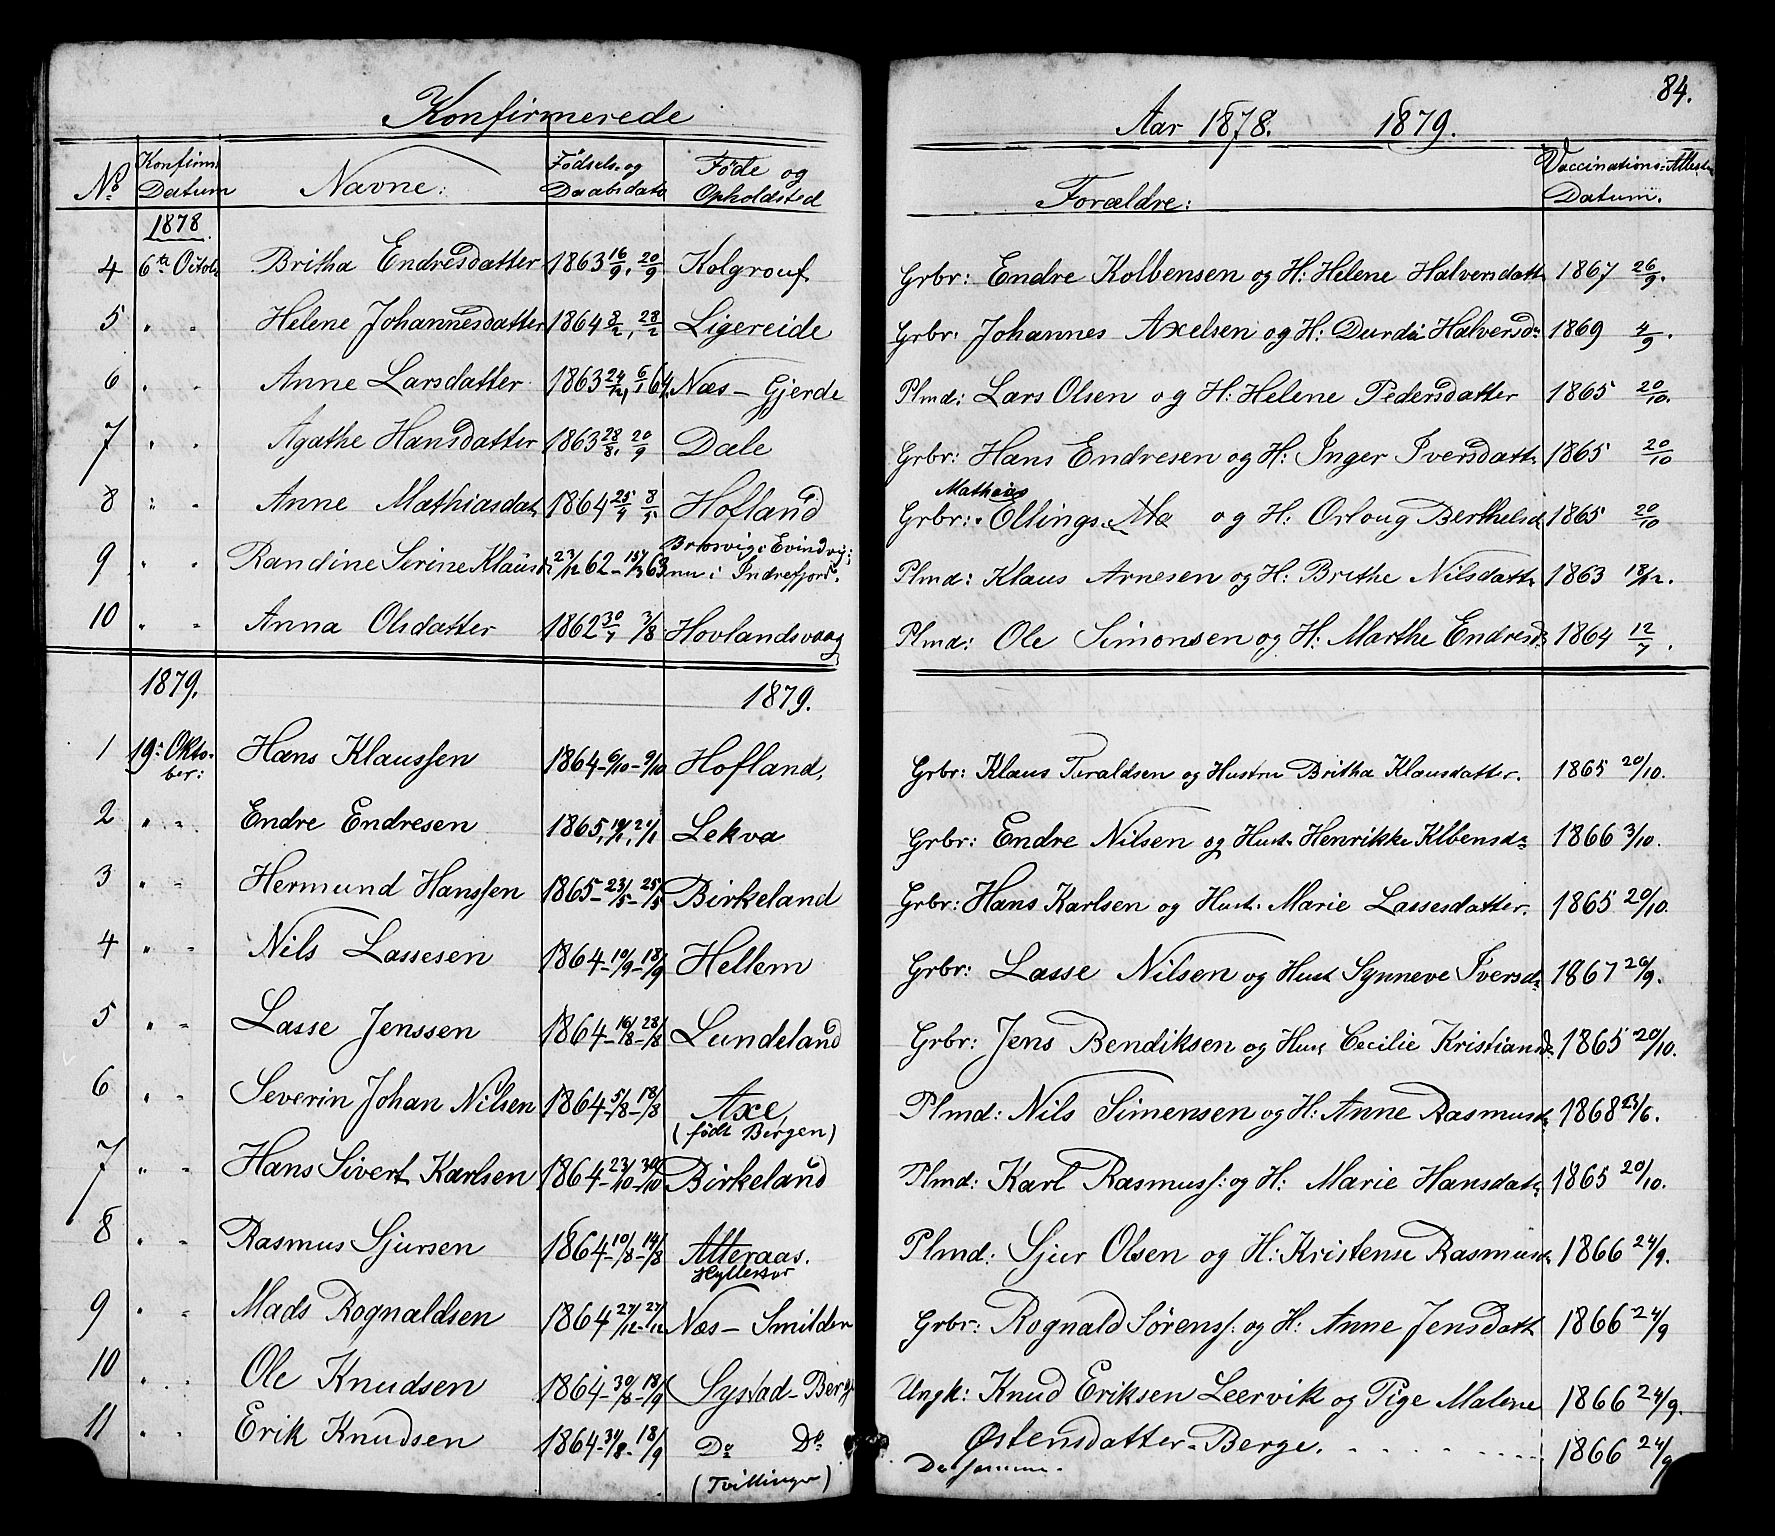 84.
Konfirmerede Aar 1878. 1879.
No Konfirm: Datum Navne: Fødsels- og Daabsdato Føde og Opholdsted Forældre: Vaccinations-Attester Datum.
1878
4 6te Octob. Britha Endresdatter 1863 16/9, 20/9 Kolgrouf Grbr: Endre Kolbensen og H: Helene Halversdatt. 1867 26/9.
5 " " Helene Johannesdatter 1864 8/2, 28/2 Ligereide Grbr: Johannes Axelsen og H: Durdei Halversd. 1869 4/9.
6 " " Anne Larsdatter 1863 24/12, 6/1 64. Næs - Gjerde Plmd: Lars Olsen og H: Helene Pedersdatter 1865 20/10.
7 " " Agathe Hansdatter 1863 28/8, 20/9 Dale Grbr: Hans Endresen og H: Inger Iversdatt. 1865 20/10
8 " " Anne Mathiasdat. 1864 25/4 8/5 Hofland Grbr: Mathias Ellings. Ma og H: Orloug Berthelsd. 1865 20/10
9 " " Randine Sirine Klausd. 23/12 62 - 15/3 63 Brosvig i Evindvig; nu i Indrefjord. Plmd: Klaus Arnesen og H: Brithe Nilsdatt. 1863 18/12.
10 " " Anna Olsdatter 1862 30/7 3/8 Hovlandsvaag Plmd: Ole Simonsen og H: Marthe Endresd. 1864 12/7.
1879. 1879.
1 19: Oktober: Hans Klaussen 1864 - 6/10 - 9/10 Hofland, Grbr: Klaus Taraldsen og Hustru Britha Klausdatter. 1865 20/10.
2 " " Endre Endresen 1865, 19/1, 21/1 Lekva Grbr: Endre Nilsen og Hust. Henrikke Klbensd. 1866 3/10.
3 " " Hermund Hanssen 1865 - 23/5 - 25/5 Birkeland Grbr: Hans Karlsen og Hust. Marie Lassesdatter. 1865 20/10.
4 " " Nils Lassesen 1864 - 10/9 - 18/9 Hellem Grbr: Lasse Nilsen og Hust Synneve Iversd. 1867 26/9.
5 " " Lasse Jenssen 1864 - 16/8 - 28/8 Lundeland Grbr: Jens Bendiksen og Hus. Cecilie Kristiansd. 1865 20/10.
6 " " Severin Johan Nilsen 1864 - 5/8 - 18/8 Axe, (født Bergen) Plmd: Nils Simensen og H: Anne Rasmusd. 1868 23/6.
7 " " Hans Sivert Karlsen 1864 - 23/10 - 30/10 Birkeland Plmd: Karl Rasmuss: og H: Marie Hansdatt. 1865 20/10.
8 " " Rasmus Sjursen 1864 - 10/8 - 14/8 Atteraas. Hyllestar Plmd: Sjur Olsen og H: Kristense Rasmusd. 1866 24/9.
9 " " Mads Rognaldsen 1864 27/12 - 27/12 Næs - Smilden Grbr: Rognald Sørenss: og H: Anne Jensdatt. 1866 24/9
10 " " Ole Knudsen 1864 - 30/8 - 18/9 Systad - Berge Ungk: Knud Eriksen Leervik og Pige Malene 1866 24/9.
Østensdatter - Berge.
11 " " Erik Knudsen 1864 - 31/8 - 18/9 Do Do (Tvillinger) De samme. 1866 24/9